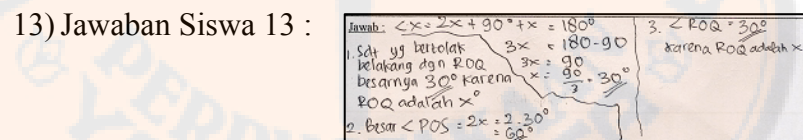 13) Jawaban Siswa 13 :
Jawab : <x = 2x + 90° + x = 180°
3x = 180 - 90
3x = 90
x = 90/3 = 30°
1. Sdt yg bertolak
belakang dgn ROQ
besarnya 30° karena
ROQ adalah x°
2. Besar < POS = 2x = 2.30°
= 60°
3. < ROQ = 30°
karena ROQ adalah x